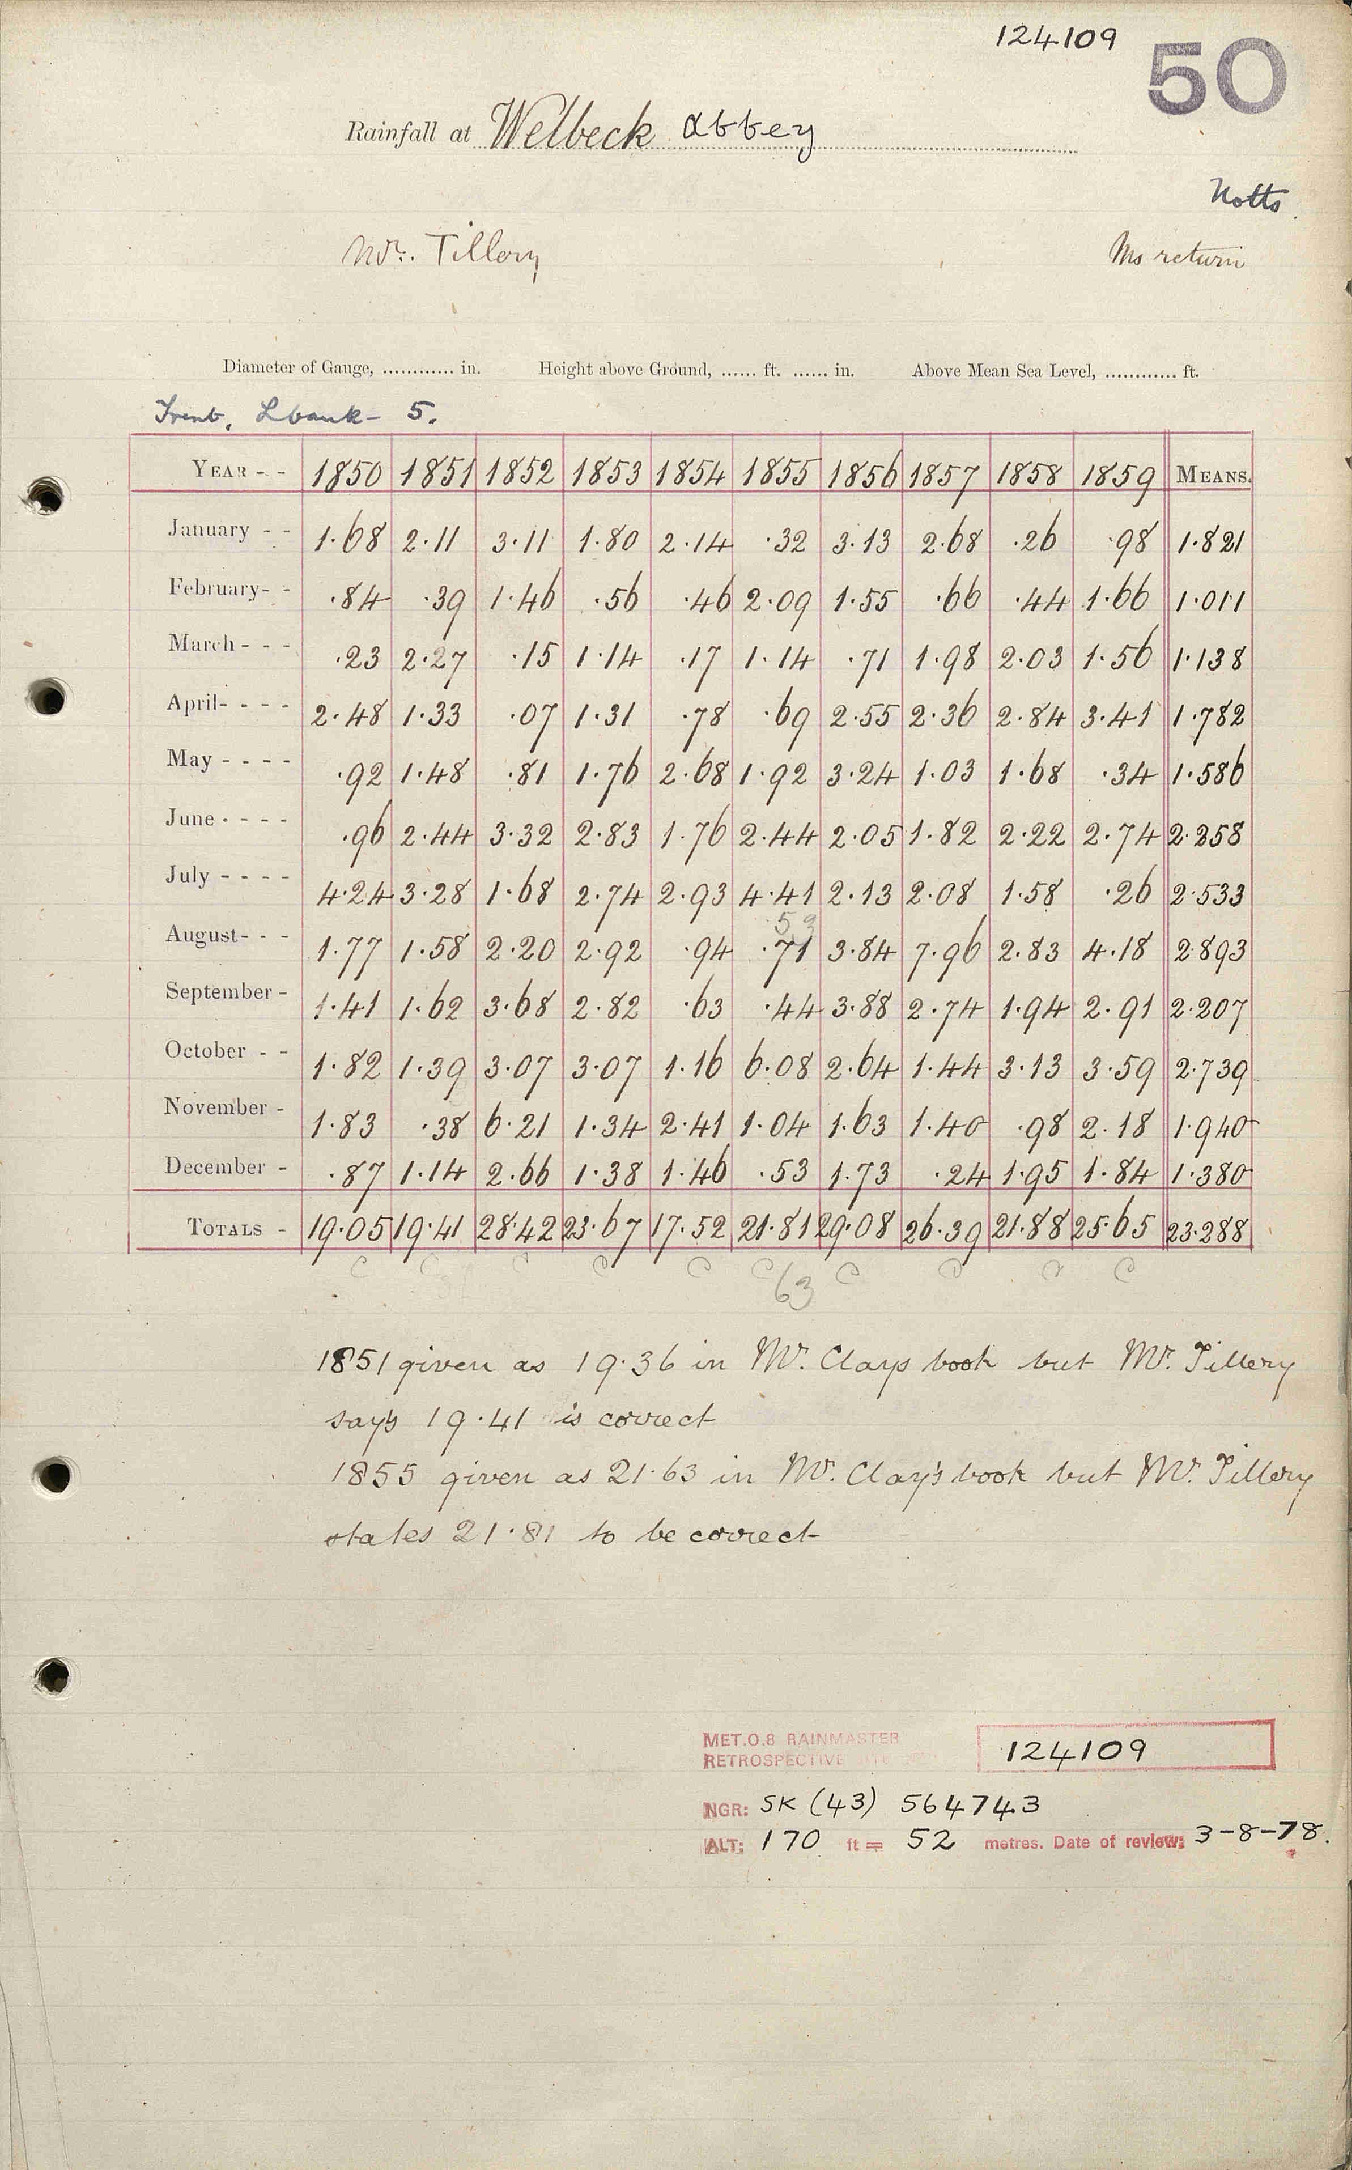 124109
50
Rainfall at Welbeck Abbey
Notts.
Mr. Tillery
Ms return
Diameter of Gauge, ............ in. Height above Ground, ...... ft. ...... in. Above Mean Sea Level, ............ ft.
Trent, L bank - 5.
YEAR - - 1850 1851 1852 1853 1854 1855 1856 1857 1858 1859 MEANS.
January - - 1.68 2.11 3.11 1.80 2.14 .32 3.13 2.68 .26 .98 1.821
February - - .84 .39 1.46 .56 .46 2.09 1.55 .66 .44 1.66 1.011
March - - - .23 2.27 .15 1.14 .17 1.14 .71 1.98 2.03 1.56 1.138
April - - - - 2.48 1.33 .07 1.31 .78 .69 2.55 2.36 2.84 3.41 1.782
May - - - - .92 1.48 .81 1.76 2.68 1.92 3.24 1.03 1.68 .34 1.586
June - - - - .96 2.44 3.32 2.83 1.76 2.44 2.05 1.82 2.22 2.74 2.258
July - - - - 4.24 3.28 1.68 2.74 2.93 4.41 2.13 2.08 1.58 .26 2.533
.53
August - - - 1.77 1.58 2.20 2.92 .94 .71 3.84 7.96 2.83 4.18 2.893
September - 1.41 1.62 3.68 2.82 .63 .44 3.88 2.74 1.94 2.91 2.207
October - - 1.82 1.39 3.07 3.07 1.16 6.08 2.64 1.44 3.13 3.59 2.739
November - 1.83 .38 6.21 1.34 2.41 1.04 1.63 1.40 .98 2.18 1.940
December - .87 1.14 2.66 1.38 1.46 .53 1.73 .24 1.95 1.84 1.380
TOTALS - 19.05 19.41 28.42 23.67 17.52 21.81 29.08 26.39 21.88 25.65 23.288
C C C C C C C C C C
63
1851 given as 19.36 in Mr. Clays book but Mr. Tillery
says 19.41 is correct
1855 given as 21.63 in Mr. Clay's book but Mr. Tillery
states 21.81 to be correct
MET.O.8 RAINMASTER
RETROSPECTIVE
124109
NGR: SK (43) 564743
ALT: 170 ft = 52 metres. Date of review: 3-8-78.